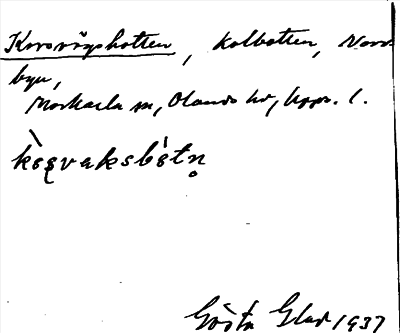 Korsvägsbotten, Kolbotten, Norr-
byn,
Morkarla sn, Olands hd, Upps. l.
kòsvaksbótn̥
Gösta Glad 1937